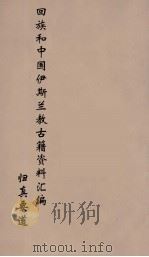 回族和中国伊斯兰教古籍资料汇编
归真要道
www.toopoo.com